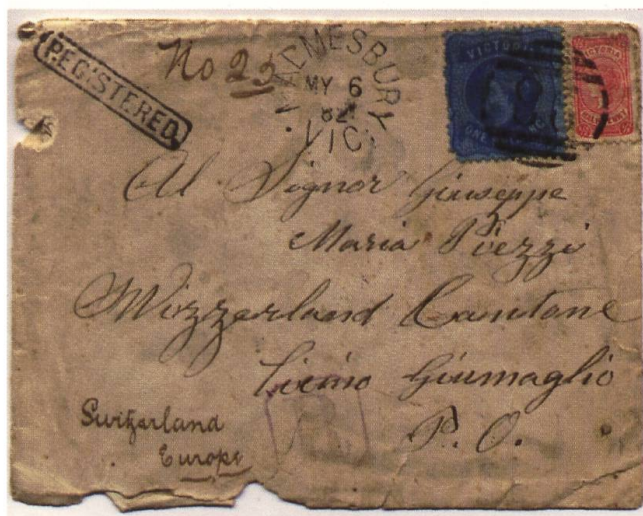 REGISTERED
No 25
MALMESBURY
MY 6
82
VIC
VICTORIA
VICTORIA
Al Signor Giuseppe
Maria Piezzi
Wizzerland Cantone
Ticino Giumaglio
P. O.
Switzerland
Europe